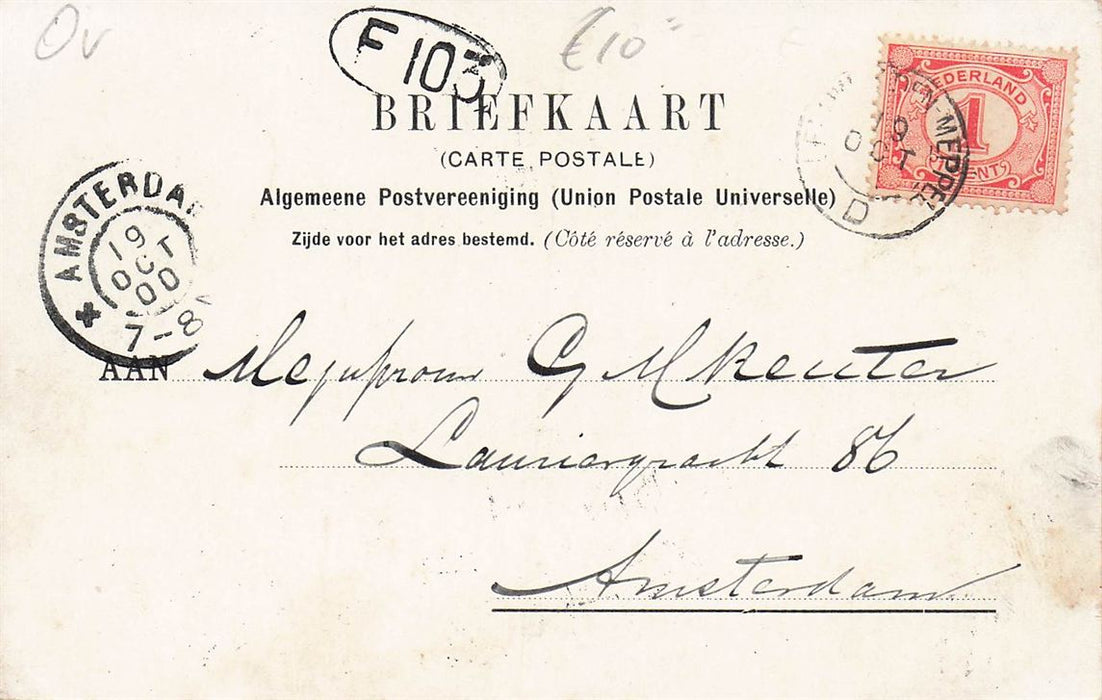 Ov
F 103
€10
BRIEFKAART
(CARTE POSTALE)
Algemeene Postvereeniging (Union Postale Universelle)
Zijde voor het adres bestemd. (Côté réservé à l'adresse.)
NEDERLAND
1
CENT
EN-MEPPEL
19 OCT
D
AMSTERDAM
19
OCT
00
7-8
AAN Mejufrouw G M Keuter
Lauriergracht 86
Amsterdam